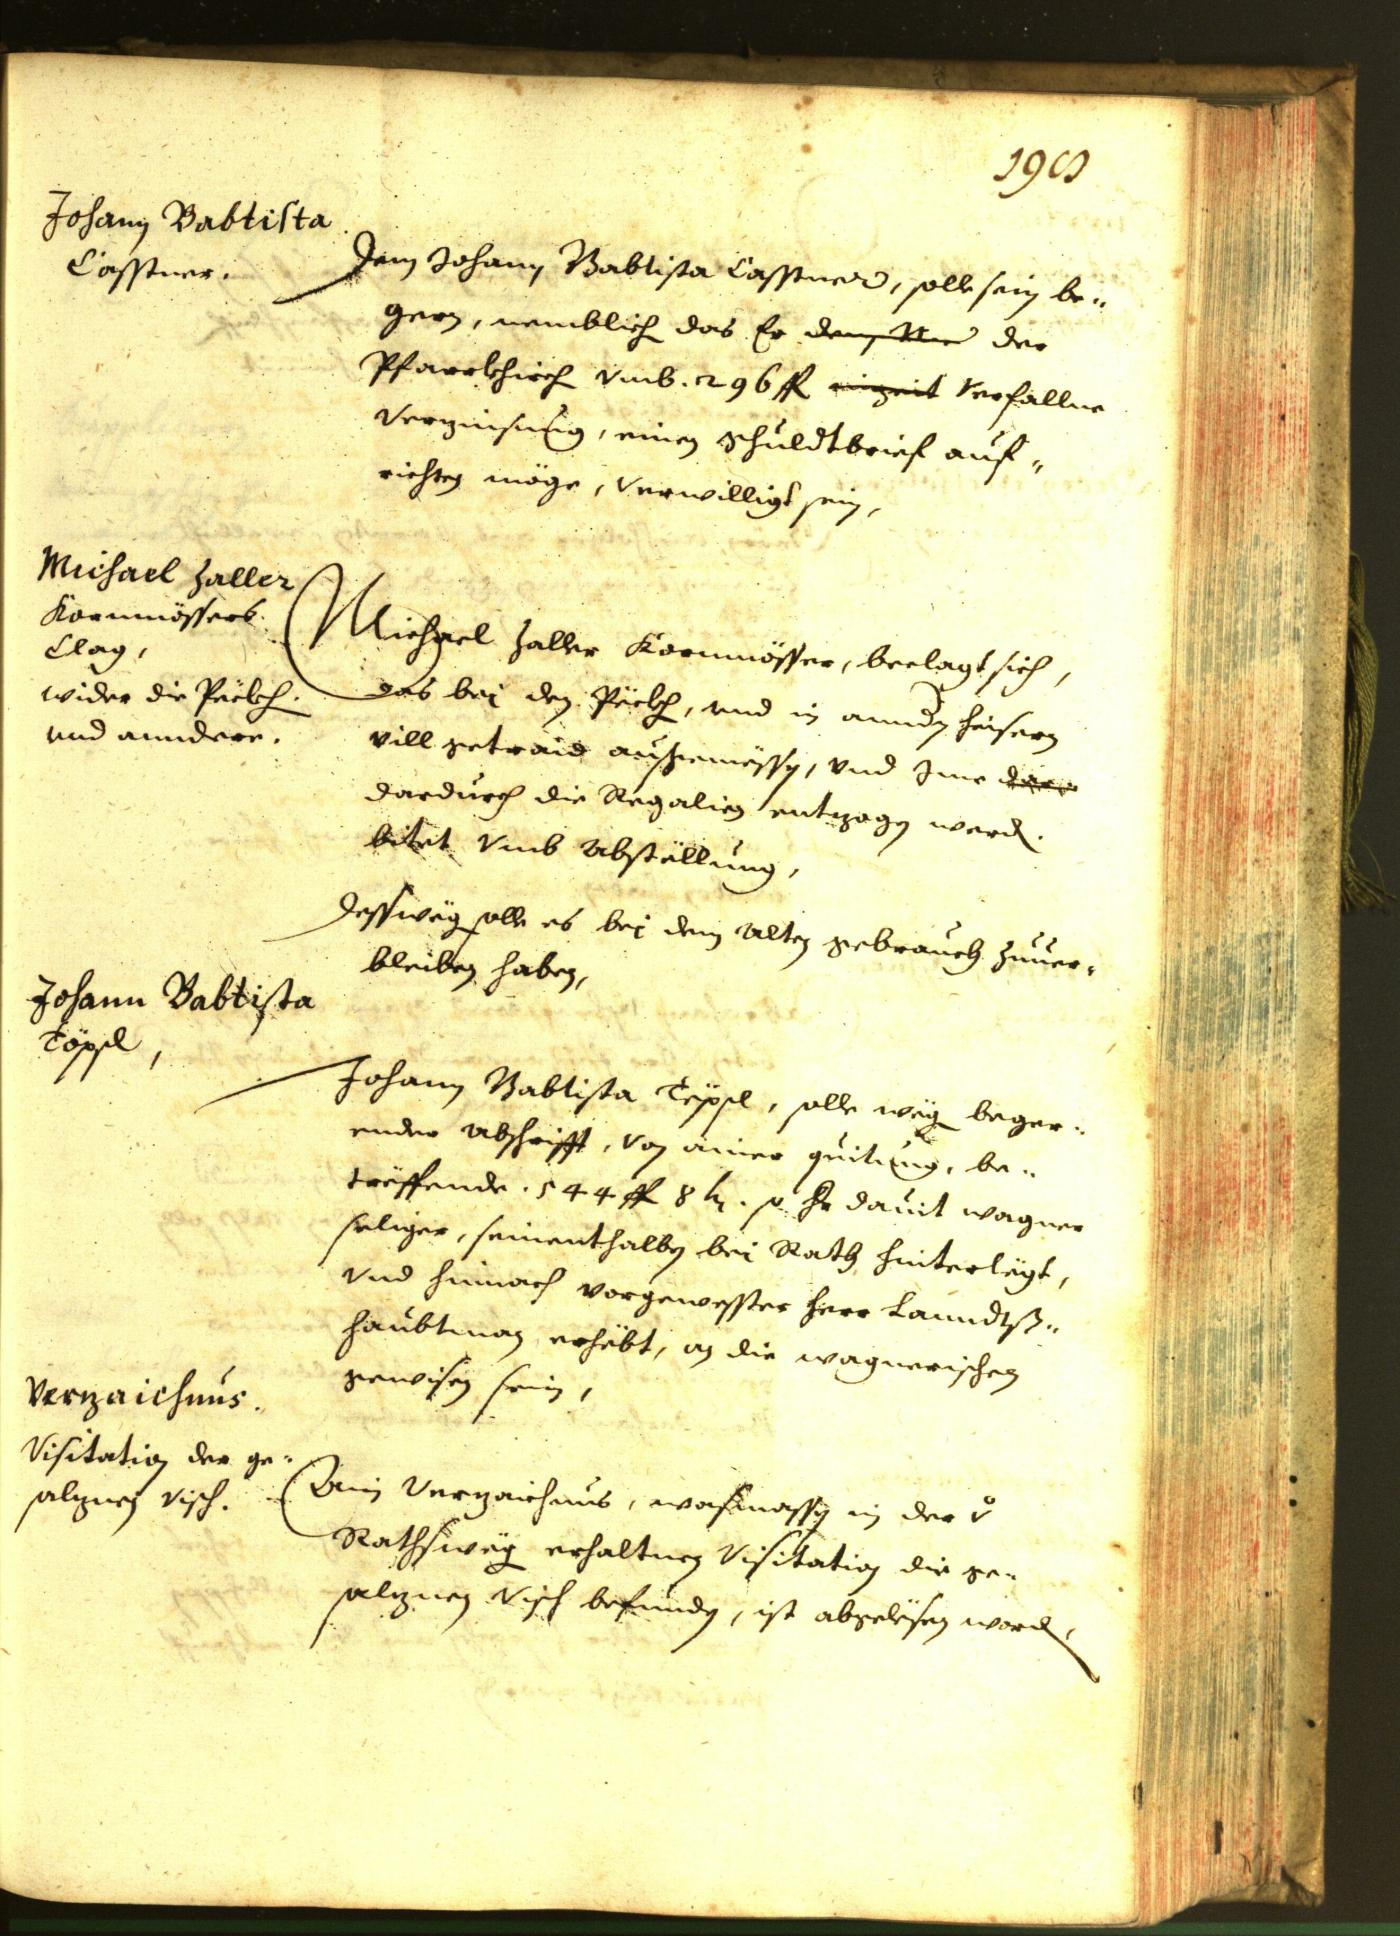 190
Johann Babtista
Casstner.
Dem Johann Babtista Casstner, solle sein be„
gern, nemblich das Er der
Pfarrkhirch vmb. 296 fl verfallne
Verzinsung, einen schuldtbrief auf„
richten möge, verwilligt sein,
Michael Haller
Kornmössers
Clag,
wider die Pëckh.
vnd anndere.
Michael Haller Kornmösser, beclagt sich,
das bei den Pëckh, vnd in anndern heisern
vill getraid außgemëssen, vnd Ime
dardurch die Regalien entzogen werd.
bitet vmb Abstëllung,
Desswëgen solle es bei dem Alten gebrauch zuuer„
bleiben haben,
Johann Babtista
Töpsl,
Johann Babtista Tëpsl, solle wëgen beger„
ender Abschrifft, von ainer quitung, be„
trëffende. 544 fl 8 kr. so Hr dauit wagner
seliger, seinenthalben bei Rath hinterlëgt,
vnd hinnach vorgewesster Herr Lanndtß„
haubtman erhëbt, an die wagnerischen
gewisen sein,
Verzaichnus.
Visitation der ge„
salznen visch.
Ain Verzaichnus, wasmassen in der
Rathswëgen erhaltnen Visitation die ge„
salznen Visch befunden, ist abgelësen word,